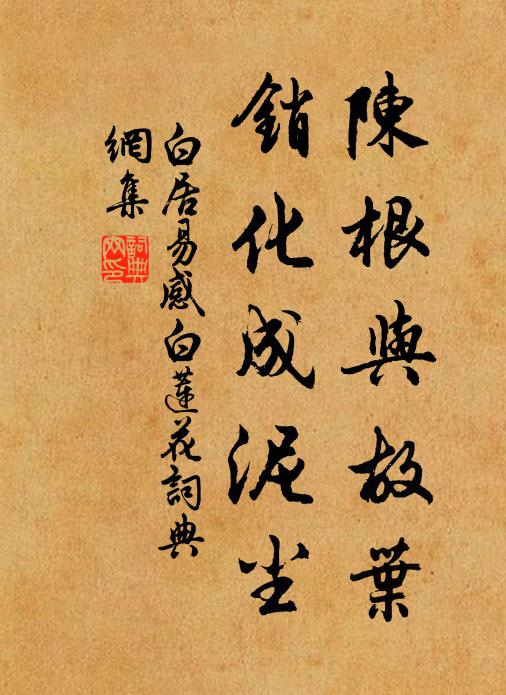 陳根與故葉
銷化成泥尘
白居易感白蓮花詞典
網集
詞典
网印